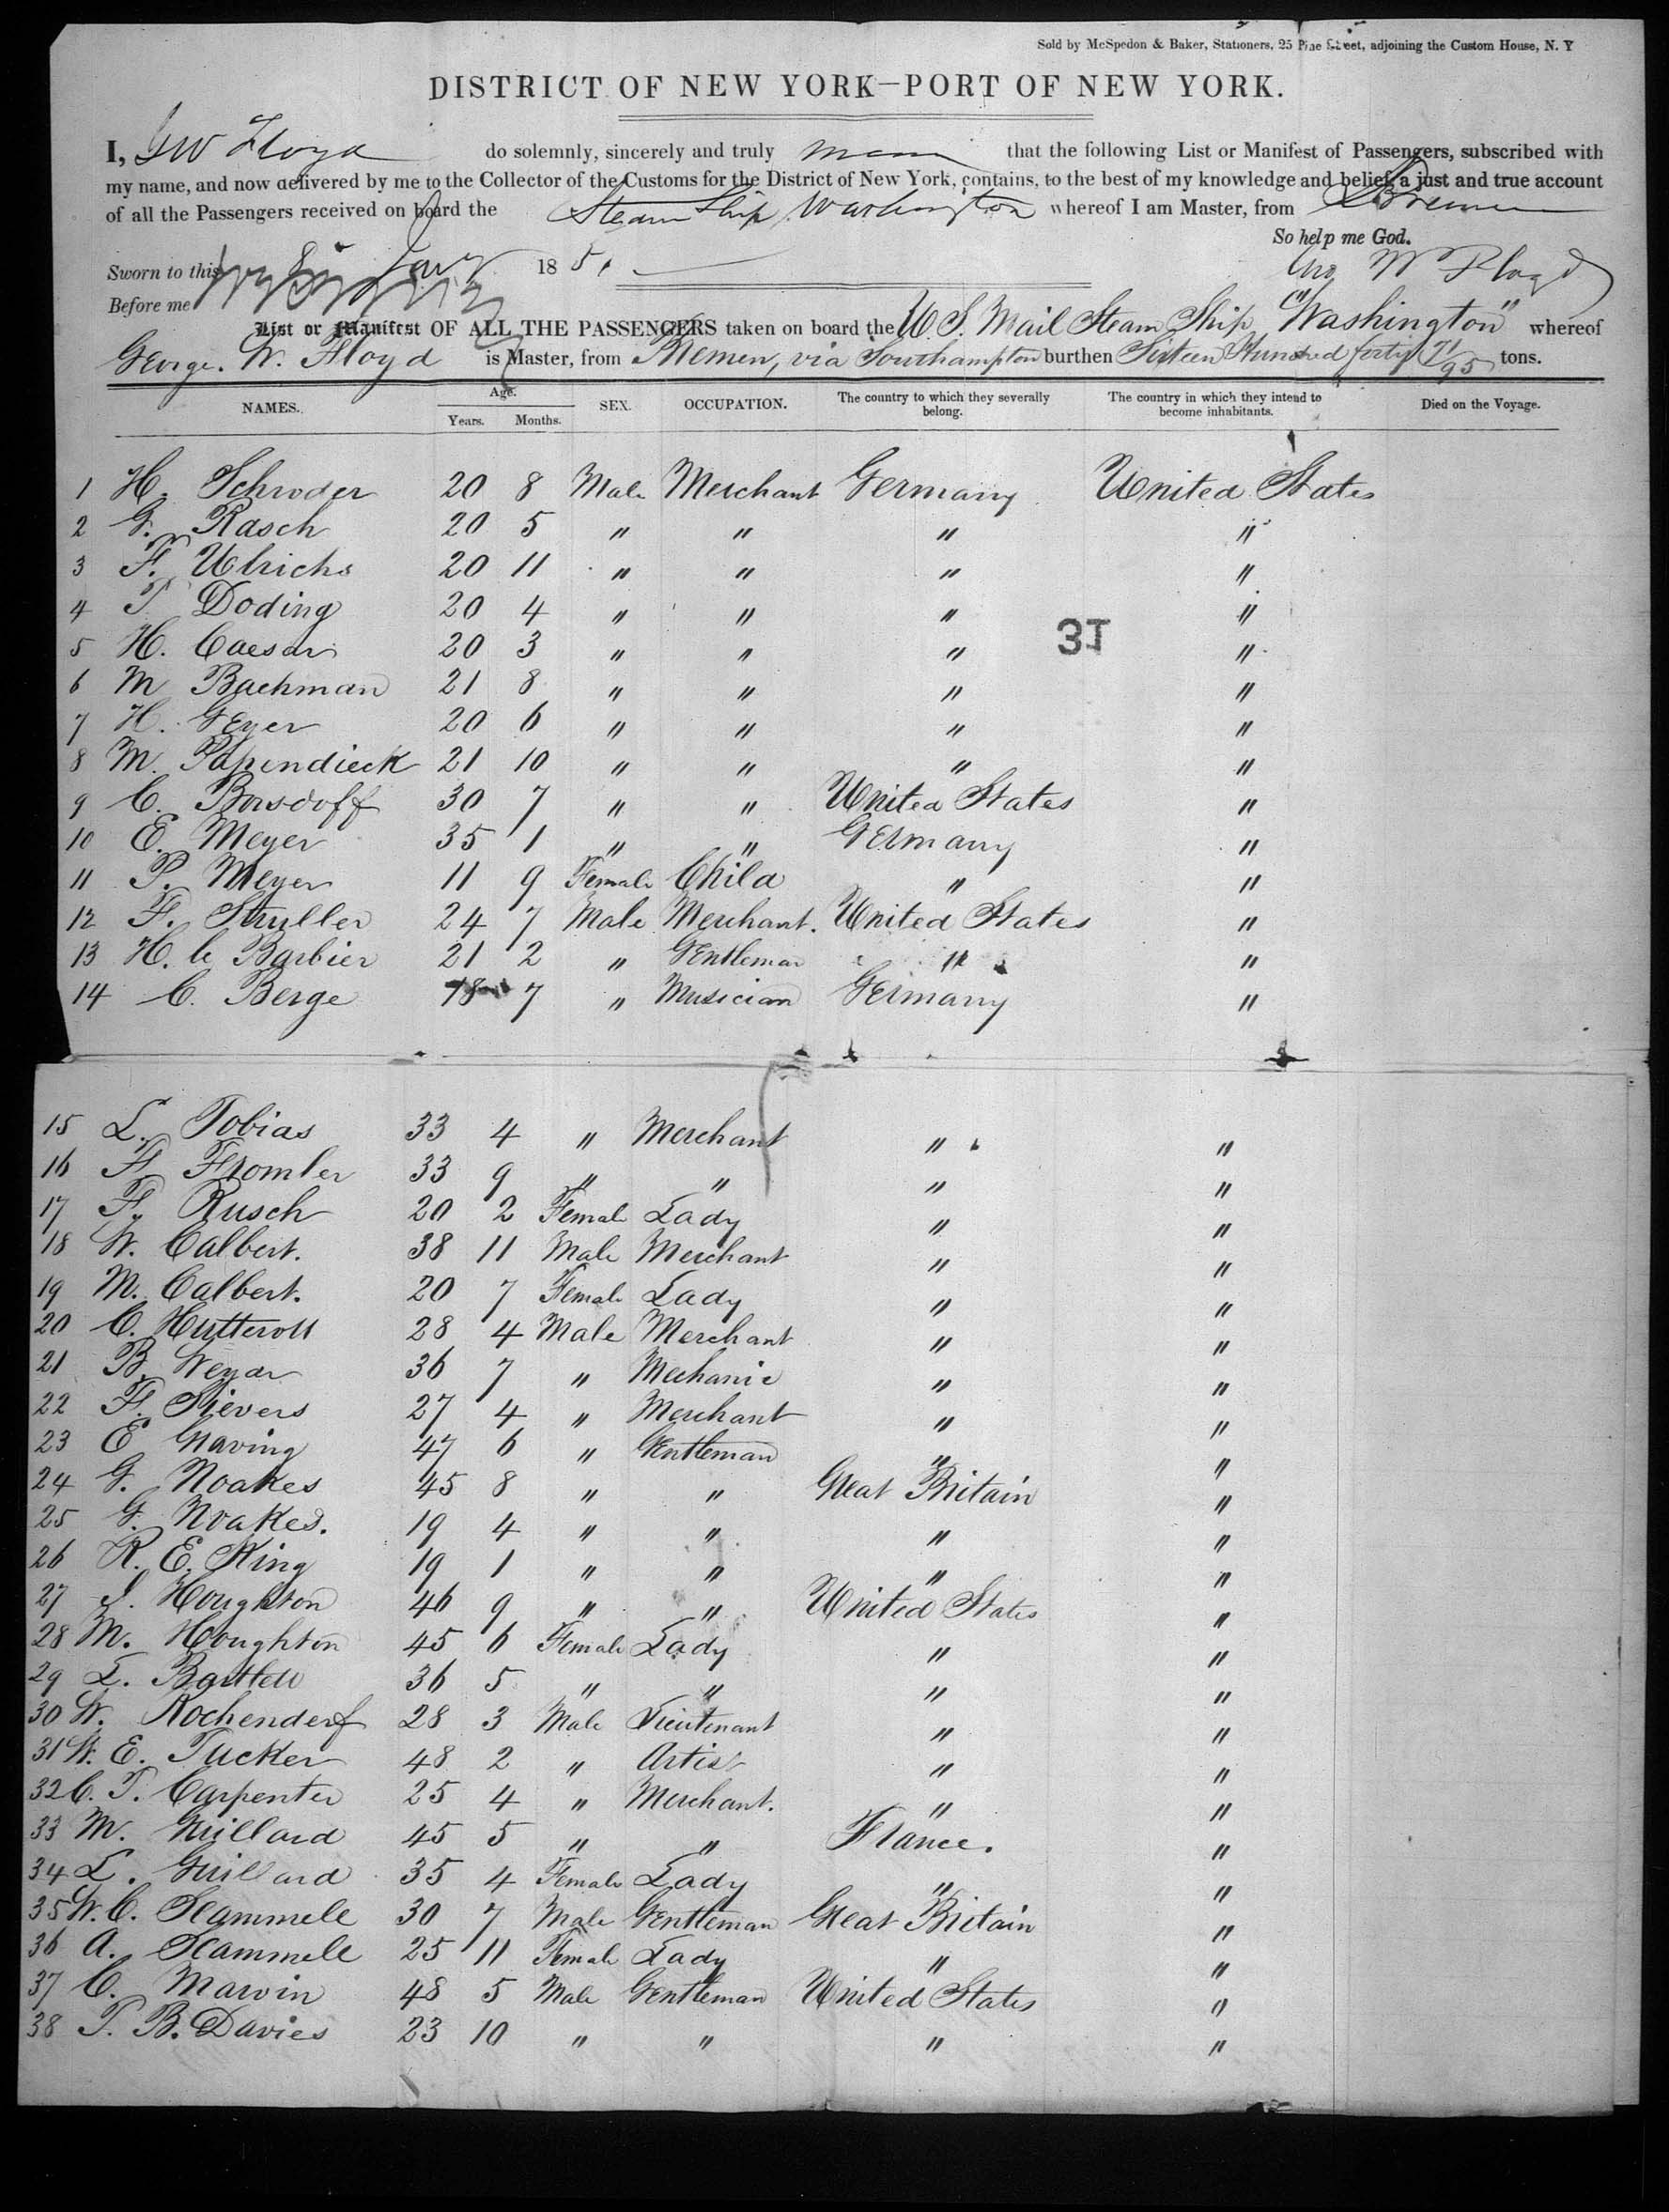 Sold by McSpedon & Baker, Stationers, 25 Pine Street, adjoining the Custom House, N. Y
DISTRICT OF NEW YORK—PORT OF NEW YORK.
I, GW Floyd do solemnly, sincerely and truly that the following List or Manifest of Passengers, subscribed with
my name, and now delivered by me to the Collector of the Customs for the District of New York, contains, to the best of my knowledge and belief, a just and true account
of all the Passengers received on board the Steam Ship Washington whereof I am Master, from Bremen
So help me God.
Sworn to this 8 Jany 1851 Geo W Floyd
Before me
List or Manifest OF ALL THE PASSENGERS taken on board the U S. Mail Steam Ship "Washington" whereof
George. W. Floyd is Master, from Bremen, via Southampton burthen Sixteen Hundred forty 71/95 tons.
NAMES. Age. Years. Months. SEX. OCCUPATION. The country to which they severally belong. The country in which they intend to become inhabitants. Died on the Voyage.
1 H. Schroder 20 8 Male Merchant Germany United States
2 G. Rasch 20 5 " " " "
3 F. Ulrichs 20 11 " " " "
4 T Doding 20 4 " " " "
31
5 H. Caesar 20 3 " " " "
6 M Bachman 21 8 " " " "
7 H. Geyer 20 6 " " " "
8 M. Papendieck 21 10 " " " "
9 C. Borsdoff 30 7 " " United States "
10 E. Meyer 35 1 " " Germany "
11 P. Meyer 11 9 Female Child " "
12 F. Struller 24 7 Male Merchant. United States "
13 H. le Barbier 21 2 " Gentleman " "
14 C. Berge 18 7 " Musician Germany "
15 L. Tobias 33 4 " Merchant " "
16 F Fromler 33 9 " " " "
17 F. Rusch 20 2 Female Lady " "
18 W. Calbert. 38 11 Male Merchant " "
19 M. Calbert. 20 7 Female Lady " "
20 C. Hutteroll 28 4 Male Merchant " "
21 B. Weyar 36 7 " Mechanic " "
22 F. Sievers 27 4 " Merchant " "
23 E Graving 47 6 " Gentleman " "
24 G. Noakes 45 8 " " Great Britain "
25 G. Noakes. 19 4 " " " "
26 R. E. King 19 1 " " " "
27 J. Houghton 46 9 " " United States "
28 M. Houghton 45 6 Female Lady " "
29 L. Bartlett 36 5 " " " "
30 W. Kochenderf 28 3 Male Lieutenant " "
31 W. E. Tucker 48 2 " Artist " "
32 C. T. Carpenter 25 4 " Merchant. " "
33 M. Guillard 45 5 " " France. "
34 L. Guillard 35 4 Female Lady " "
35 W. C. Scammele 30 7 Male Gentleman Great Britain "
36 A. Scammele 25 11 Female Lady " "
37 C. Marvin 48 5 Male Gentleman United States "
38 T. B. Davies 23 10 " " " "